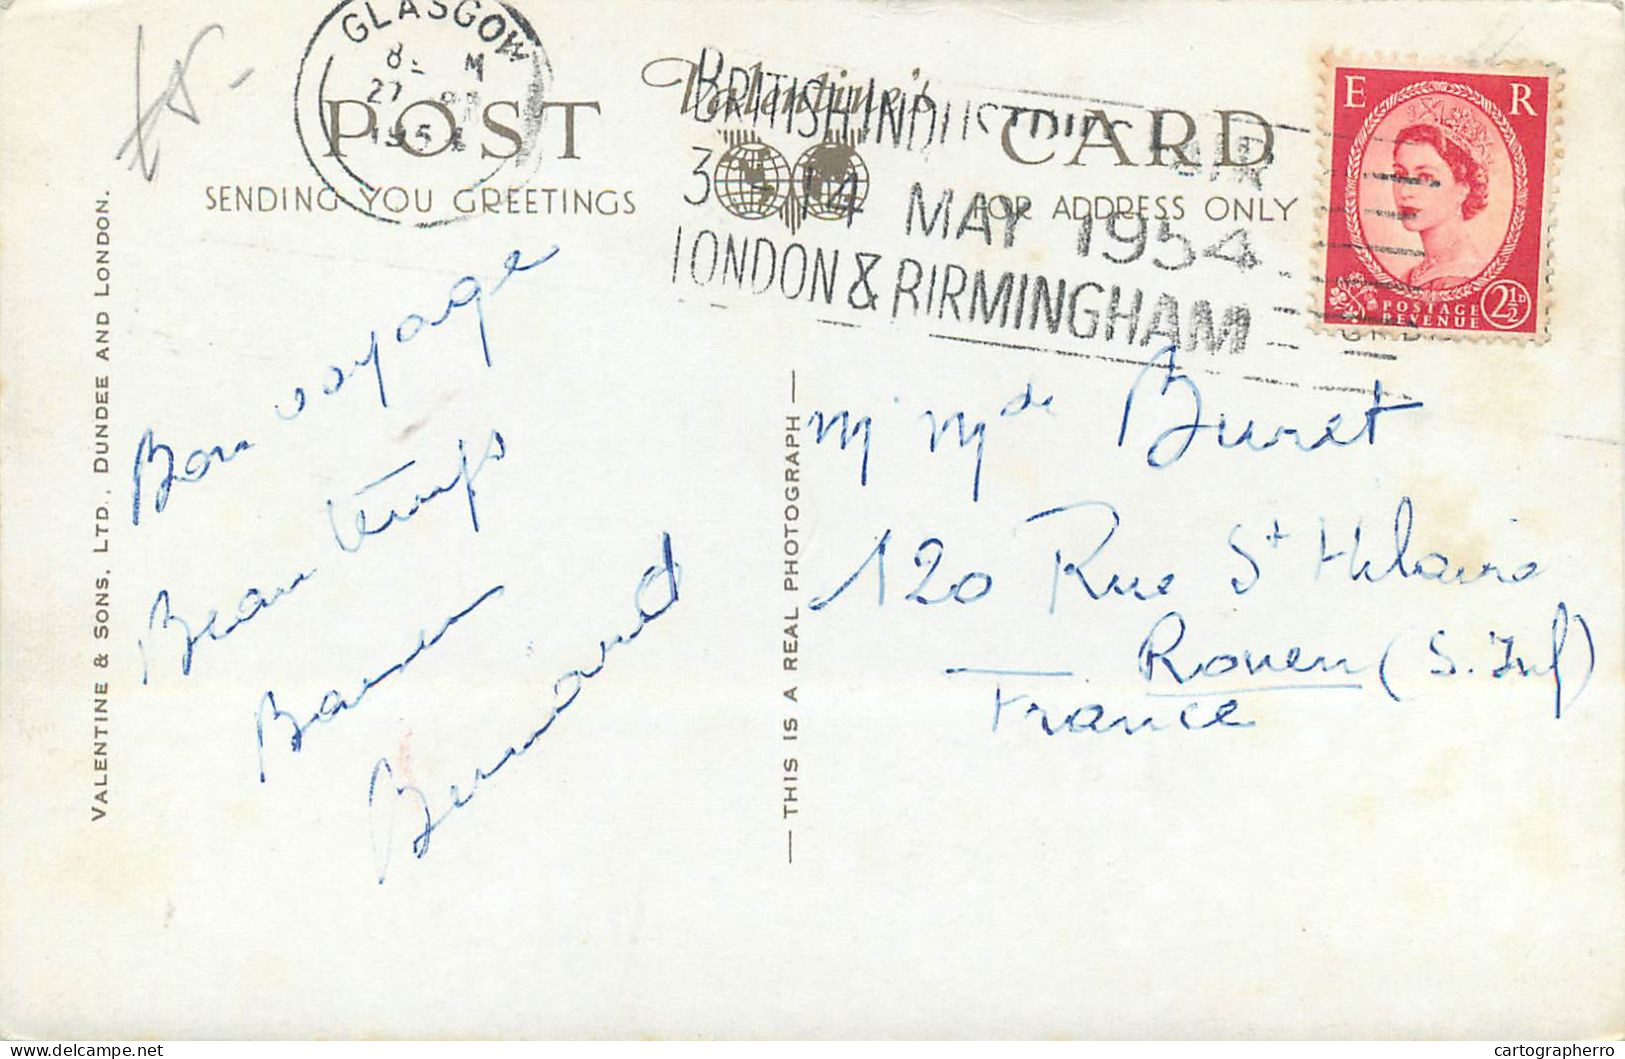 GLASGOW
27
1954
POST
Valentine's
CARD
SENDING YOU GREETINGS
FOR ADDRESS ONLY
BRITISH INDUSTRIES FAIR
3 - 14 MAY 1954
LONDON & BIRMINGHAM
E R
POSTAGE
REVENUE
2½D
VALENTINE & SONS, LTD., DUNDEE AND LONDON.
Bon voyage
Beau temps
Bernard
— THIS IS A REAL PHOTOGRAPH —
Mr Mde Buret
120 Rue St Hilaire
Rouen (S. Inf)
France
cartographerro